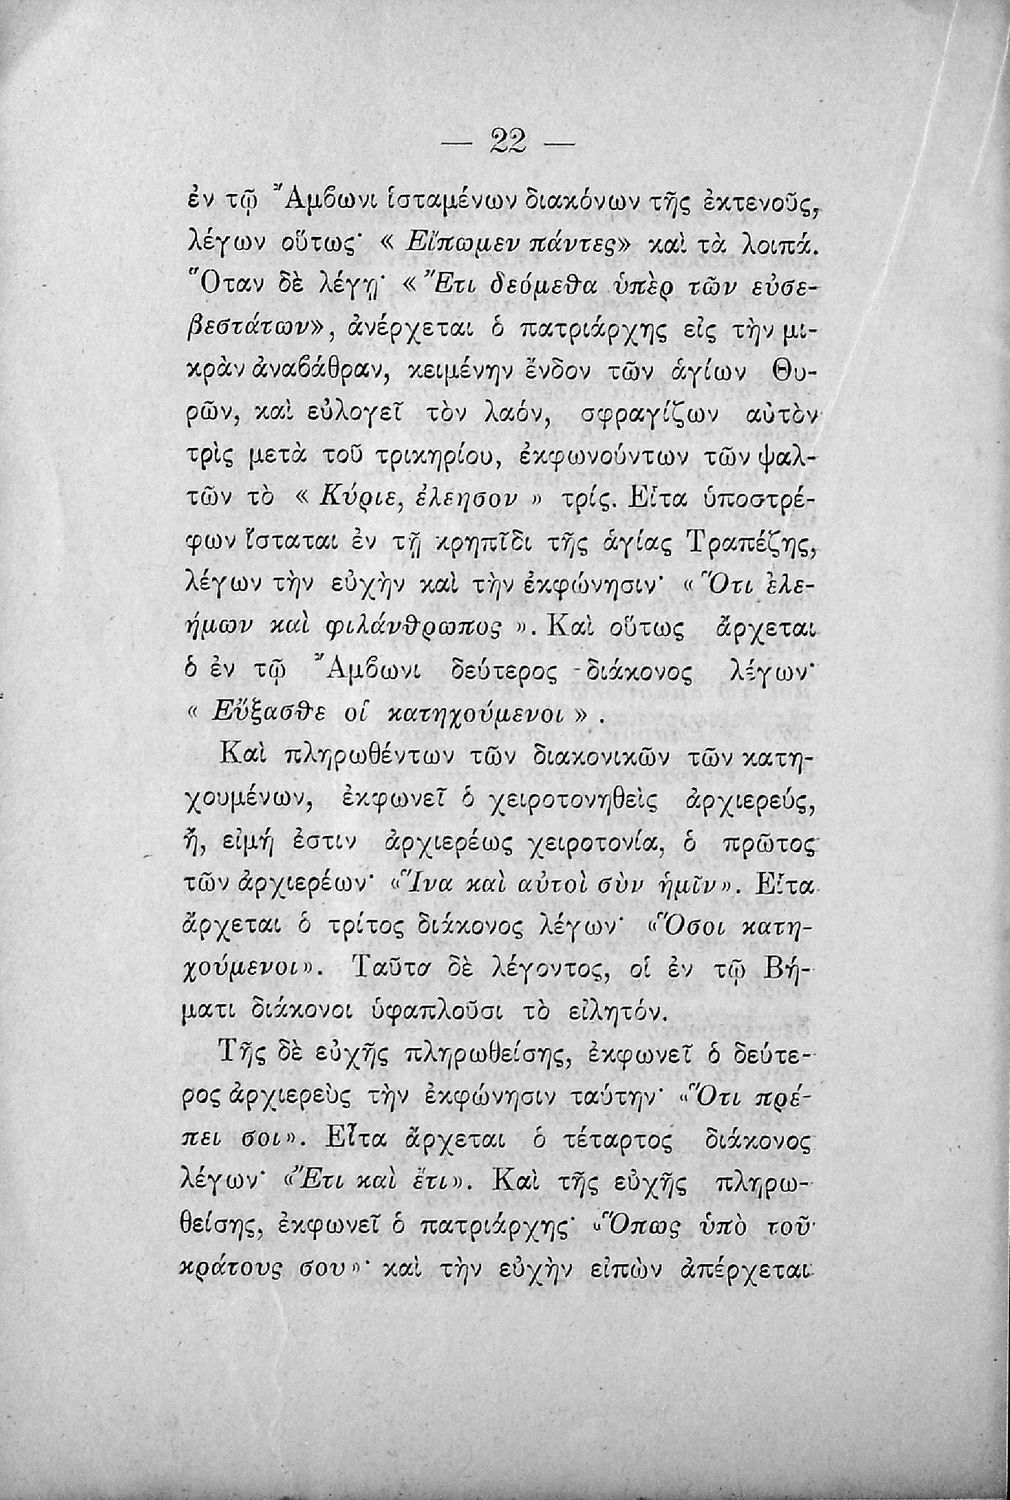 — 22 —
ἐν τῷ Ἄμβωνι ἱσταμένων διακόνων τῆς ἐκτενοῦς,
λέγων οὕτως· « Εἴπωμεν πάντες» καὶ τὰ λοιπά.
Ὅταν δὲ λέγῃ· « Ἔτι δεόμεθα ὑπὲρ τῶν εὐσε-
βεστάτων», ἀνέρχεται ὁ πατριάρχης εἰς τὴν μι-
κρὰν ἀναβάθραν, κειμένην ἔνδον τῶν ἁγίων Θυ-
ρῶν, καὶ εὐλογεῖ τὸν λαόν, σφραγίζων αὐτὸν
τρὶς μετὰ τοῦ τρικηρίου, ἐκφωνούντων τῶν ψαλ-
τῶν τὸ « Κύριε, ἐλεησον » τρίς. Εἶτα ὑποστρέ-
φων ἵσταται ἐν τῇ κρηπῖδι τῆς ἁγίας Τραπέζης,
λέγων τὴν εὐχὴν καὶ τὴν ἐκφώνησιν· « Ὅτι ἐλε-
ήμων καὶ φιλάνθρωπος ». Καὶ οὕτως ἄρχεται
ὁ ἐν τῷ Ἄμβωνι δεύτερος διάκονος λέγων·
« Εὔξασθε οἱ κατηχούμενοι » .
Καὶ πληρωθέντων τῶν διακονικῶν τῶν κατη-
χουμένων, ἐκφωνεῖ ὁ χειροτονηθεὶς ἀρχιερεύς,
ἤ, εἰμή ἐστιν ἀρχιερέως χειροτονία, ὁ πρῶτος
τῶν ἀρχιερέων· «Ἵνα καὶ αὐτοὶ σὺν ἡμῖν». Εἶτα
ἄρχεται ὁ τρίτος διάκονος λέγων· «Ὅσοι κατη-
χούμενοι». Ταῦτα δὲ λέγοντος, οἱ ἐν τῷ Βή-
ματι διάκονοι ὑφαπλοῦσι τὸ εἰλητόν.
Τῆς δὲ εὐχῆς πληρωθείσης, ἐκφωνεῖ ὁ δεύτε-
ρος ἀρχιερεὺς τὴν ἐκφώνησιν ταύτην· «Ὅτι πρέ-
πει σοι». Εἶτα ἄρχεται ὁ τέταρτος διάκονος
λέγων· «Ἔτι καὶ ἔτι». Καὶ τῆς εὐχῆς πληρω-
θείσης, ἐκφωνεῖ ὁ πατριάρχης· «Ὅπως ὑπὸ τοῦ
κράτους σου»· καὶ τὴν εὐχὴν εἰπὼν ἀπέρχεται